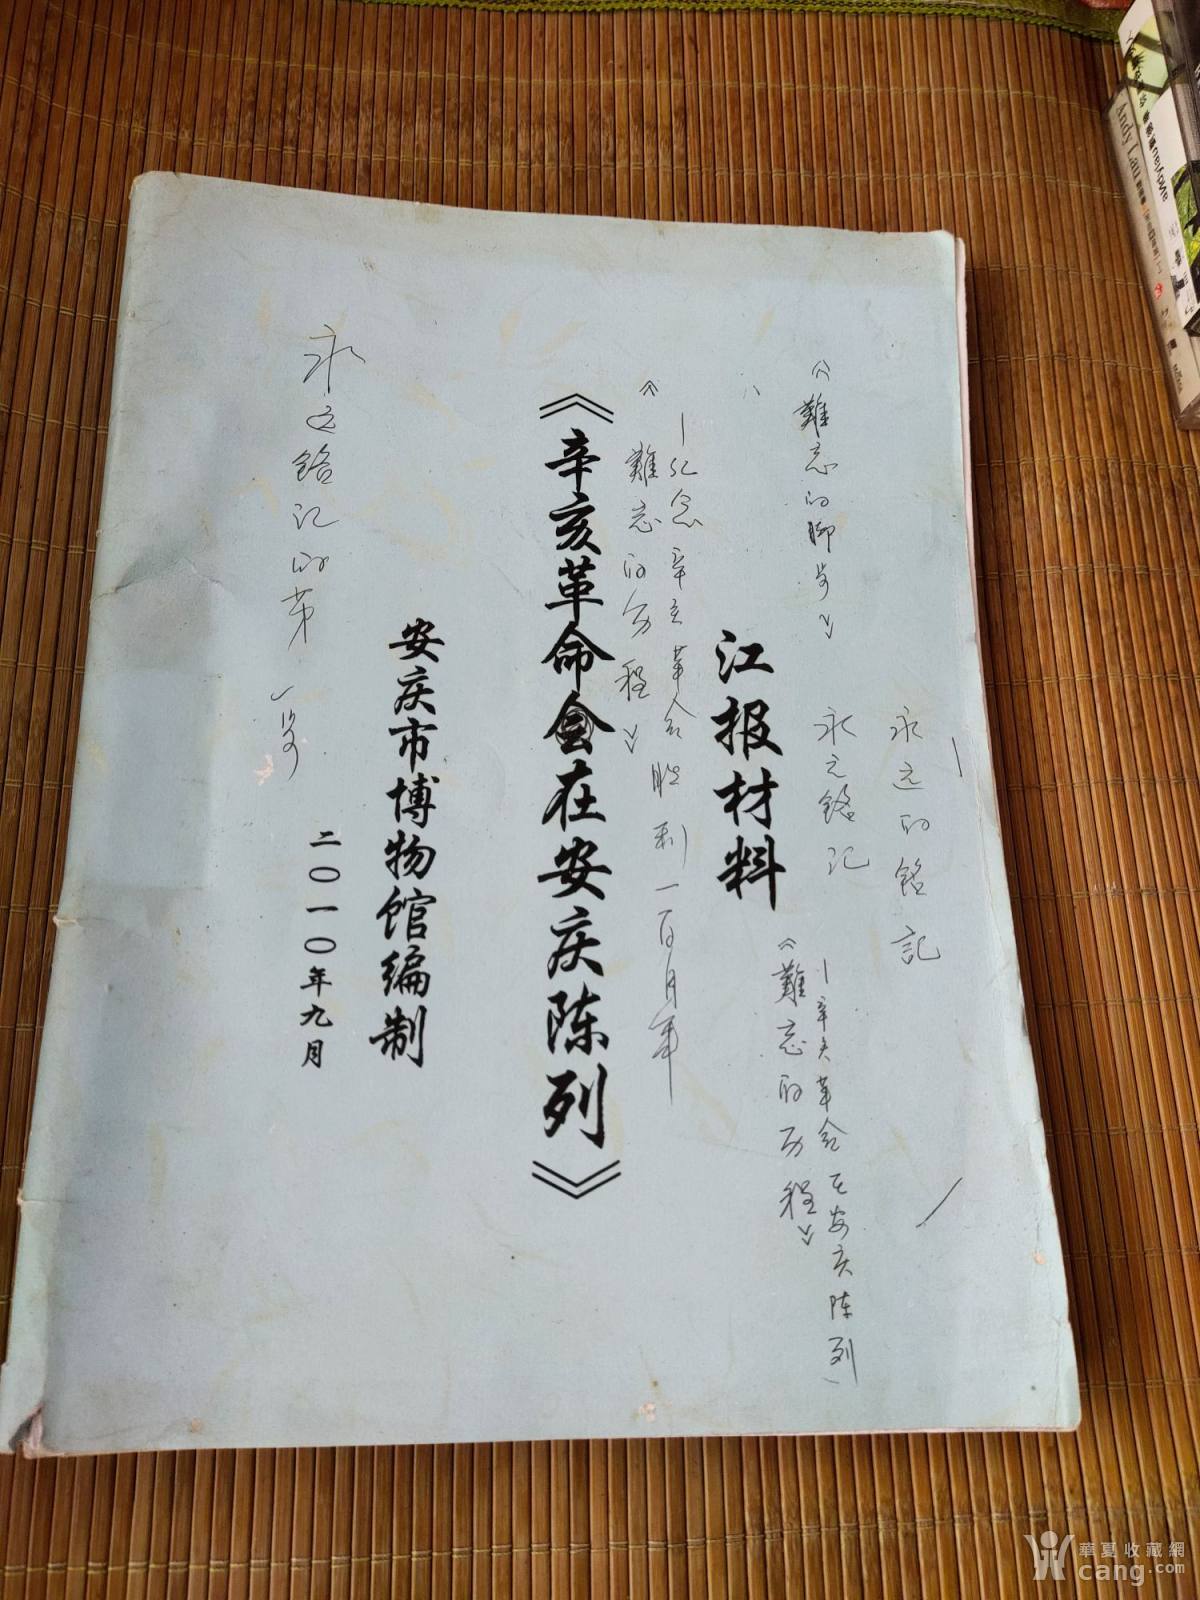 永远的铭記
《難忘的脚步》
永远铭记
—辛亥革命在安庆陈列
《難忘的历程》
江报材料
—纪念辛亥革命胜利一百周年
《難忘的历程》
《辛亥革命会在安庆陈列》
安庆市博物馆编制
二〇一〇年九月
永远铭记的第一步
Andy Lau
華夏收藏網
cang.com